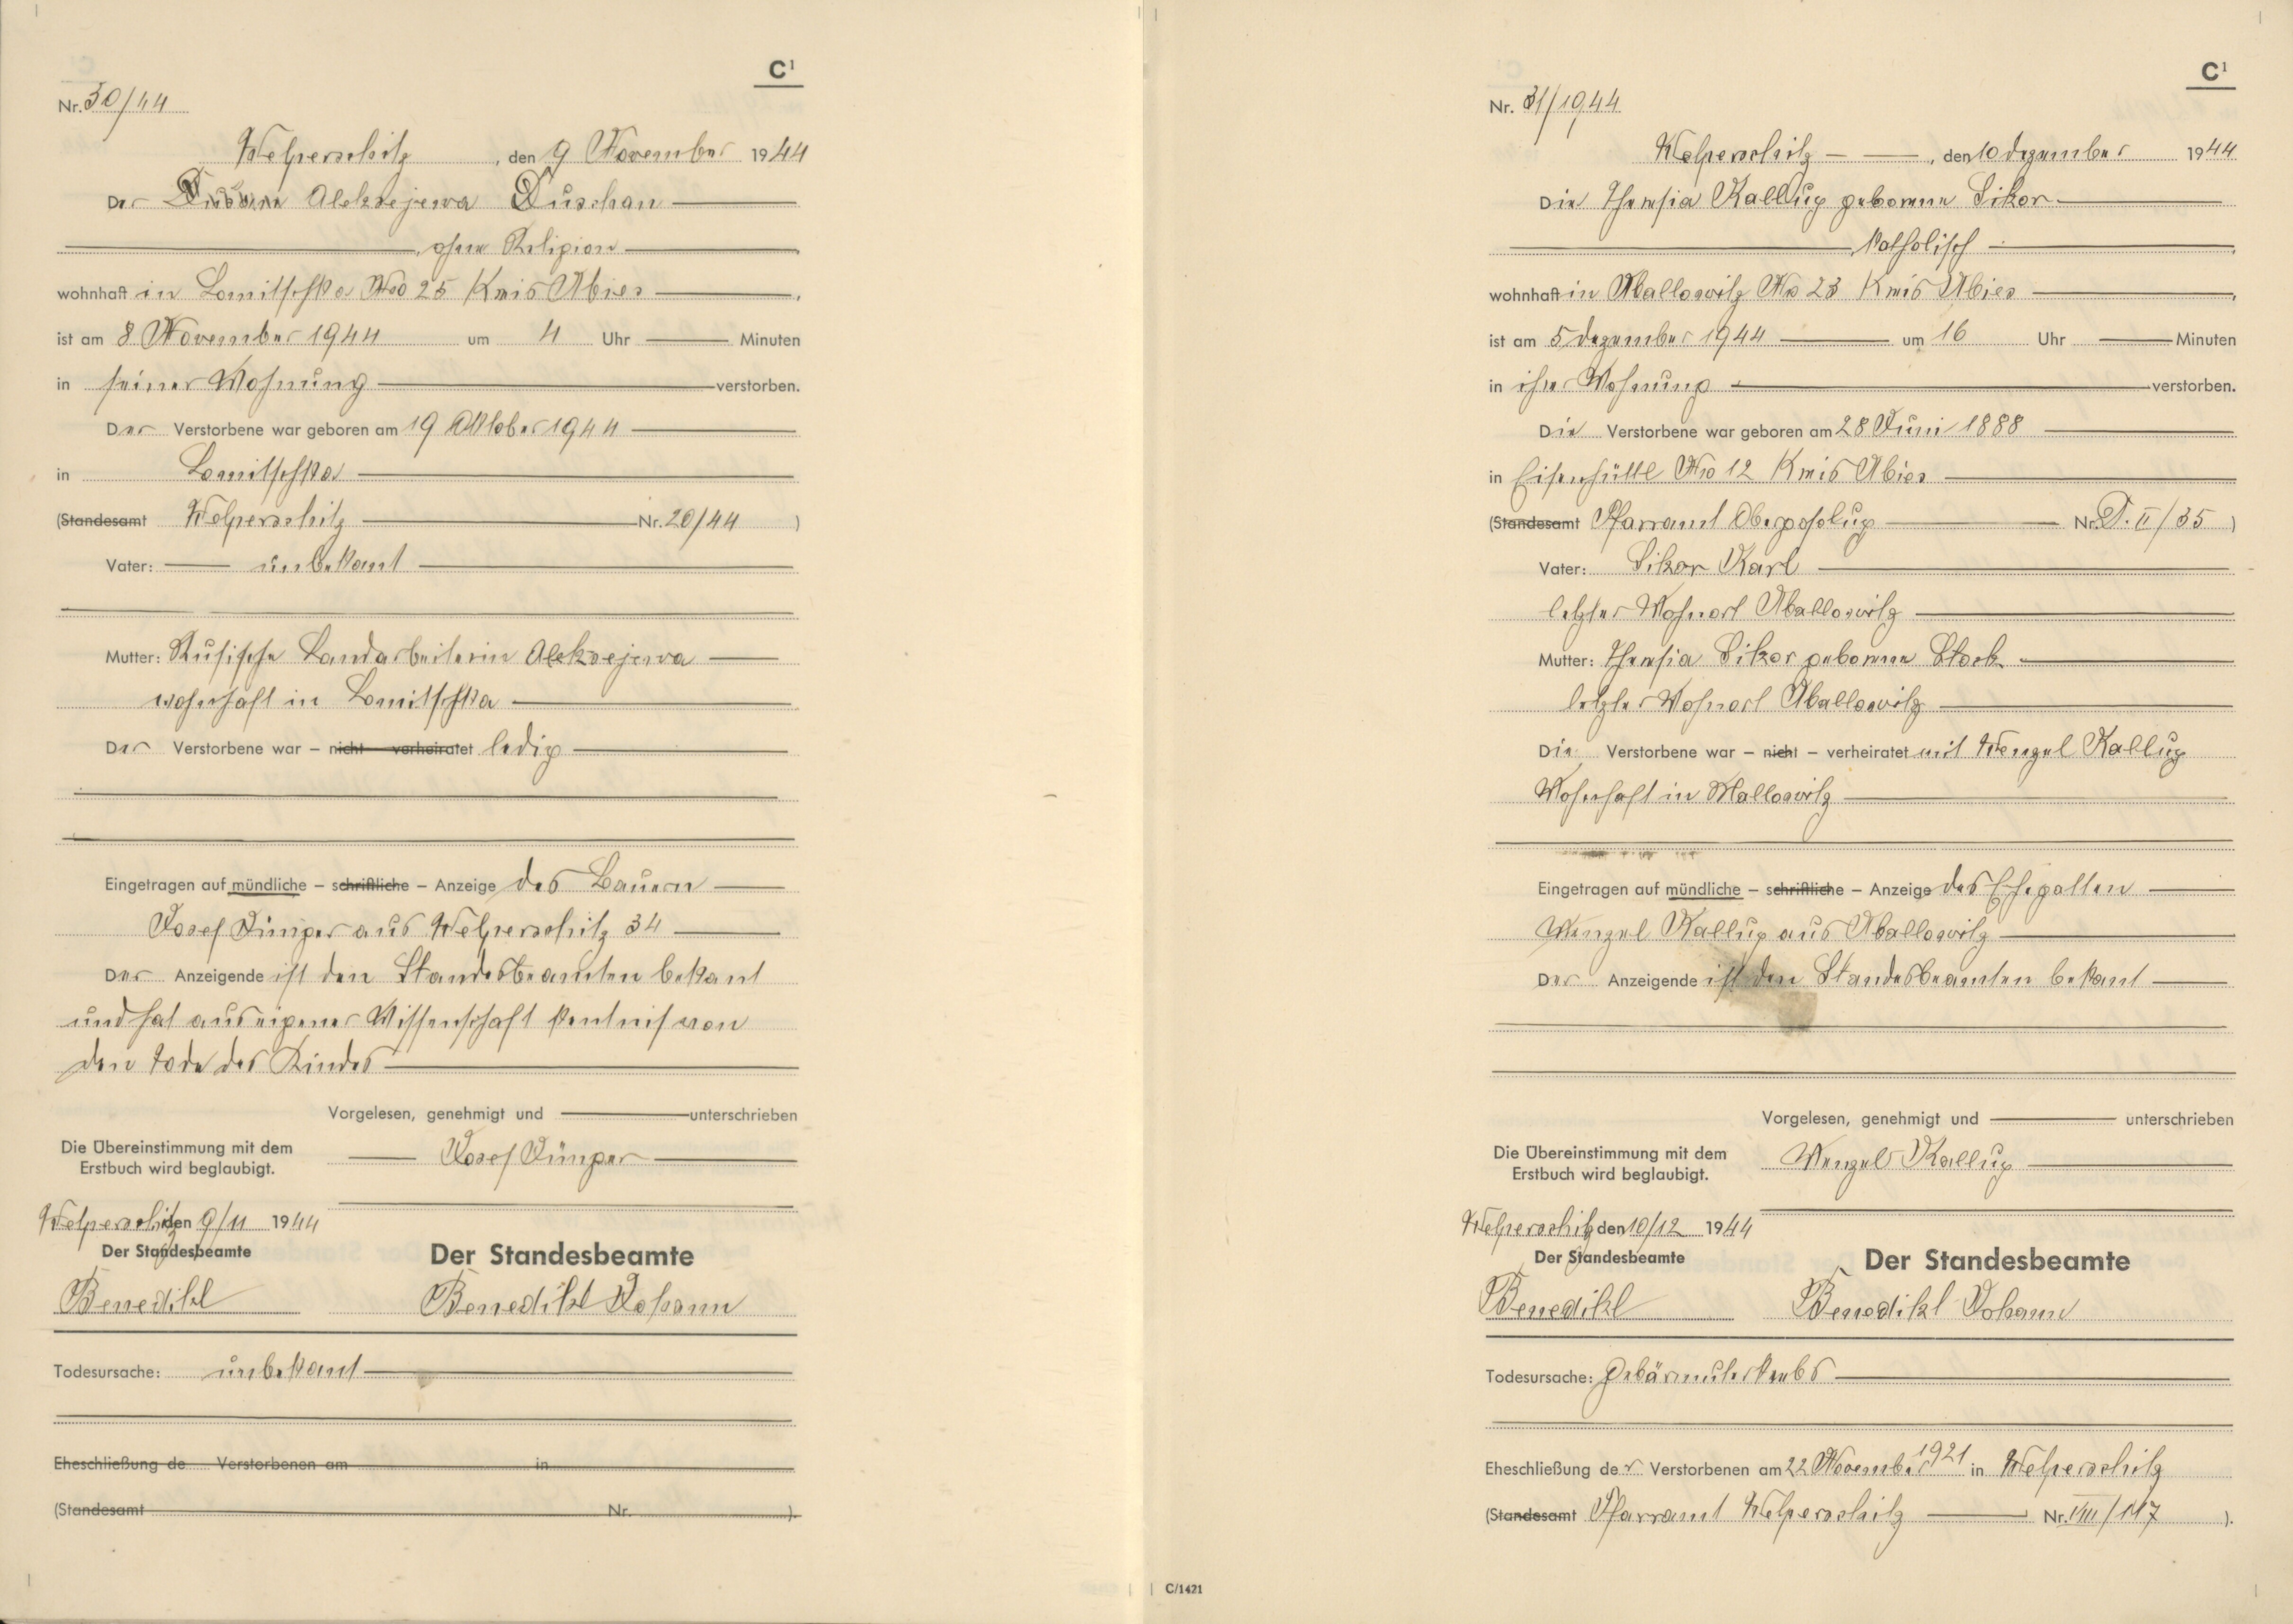 C¹
Nr. 30/44
Welperschitz, den 9 November 1944
Der Aleksejewa Duschan
ohne Religion
wohnhaft in Lomitschka No 25 Kreis Mies,
ist am 8 November 1944 um 4 Uhr Minuten
in seiner Wohnung verstorben.
Der Verstorbene war geboren am 19 Oktober 1944
in Lomitschka
(Standesamt Welperschitz Nr. 20/44)
Vater: unbekant
Mutter: Rusische Landarbeiterin Aleksejewa
wohnhaft in Lomitschka
Der Verstorbene war – nicht – verheiratet ledig
Eingetragen auf mündliche – schriftliche – Anzeige des Bauern
Josef Jünger aus Welperschitz 34
Der Anzeigende ist den Standesbeamten bekant
und hat aus eigener Wissenschaft kentnis von
den tode des Kindes
Vorgelesen, genehmigt und unterschrieben
Die Übereinstimmung mit dem
Erstbuch wird beglaubigt.
Josef Jünger
Welperschitz den 9/11 1944
Der Standesbeamte
Der Standesbeamte
Benedikt
Benedikt Johann
Todesursache: unbekant
Eheschließung de Verstorbenen am in
(Standesamt Nr. ).
C¹
Nr. 31/1944
Welperschitz, den 10 dezember 1944
Die Theresia Kallug geborene Sikor
katholisch,
wohnhaft in Mallowitz No 23 Kreis Mies,
ist am 5 dezember 1944 um 16 Uhr Minuten
in ihrer Wohnung verstorben.
Die Verstorbene war geboren am 28 Juni 1888
in Eisenhüttl No 12 Kreis Mies
(Standesamt Pfarramt Obergoschlug Nr. D. II/35)
Vater: Sikor Karl
letzter Wohnort Mallowitz
Mutter: Theresia Sikor geborene Stock
letzter Wohnort Mallowitz
Die Verstorbene war – nicht – verheiratet mit Wenzel Kallug
Wohnhaft in Mallowitz
Eingetragen auf mündliche – schriftliche – Anzeige des Ehegatten
Wenzel Kallug aus Mallowitz
Der Anzeigende ist den Standesbeamten bekant
Vorgelesen, genehmigt und unterschrieben
Die Übereinstimmung mit dem
Erstbuch wird beglaubigt.
Wenzel Kallug
Welperschitz den 10/12 1944
Der Standesbeamte
Der Standesbeamte
Benedikt
Benedikt Johann
Todesursache: gebärmuterkrebs
Eheschließung der Verstorbenen am 22 November 1921 in Welperschitz
(Standesamt Pfarramt Welperschitz Nr. VIII/117).
C/1421